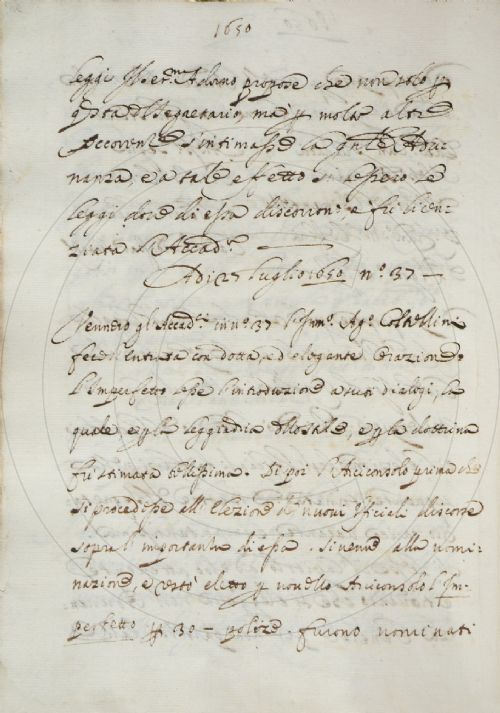 1650
leggi Il Ser.mo Adamo propose che non solo p
q.sta del Segretario, ma p molte altre
occorrenze s'intimasse la g.nle Adu-
nanza, e a tale effetto si lessero le
leggi dove di essa discorrono e fù licen-
ziata l'Accad.a
Adi 27 luglio 1650 n.o 37 —
Vennero gl'Accad.ci in n.o 37 l' Ag.o Coltellini
fece l'entrata con dotta, ed elegante Orazione,
l'Imperfetto lesse l'introduzione a suoi dialogi, la
quale e p la leggiadria dello stile, e p la dottrina
fù stimata bellissima. Di poi l'Arciconsolo prima che
si procedesse all'Elezione de nuovi Uficiali discorse
sopra l'importanza di essa. Si venne alla nomi-
nazione, e restò eletto p novello Arciconsolo l'Im-
perfetto p 30 — polize. furono nominati